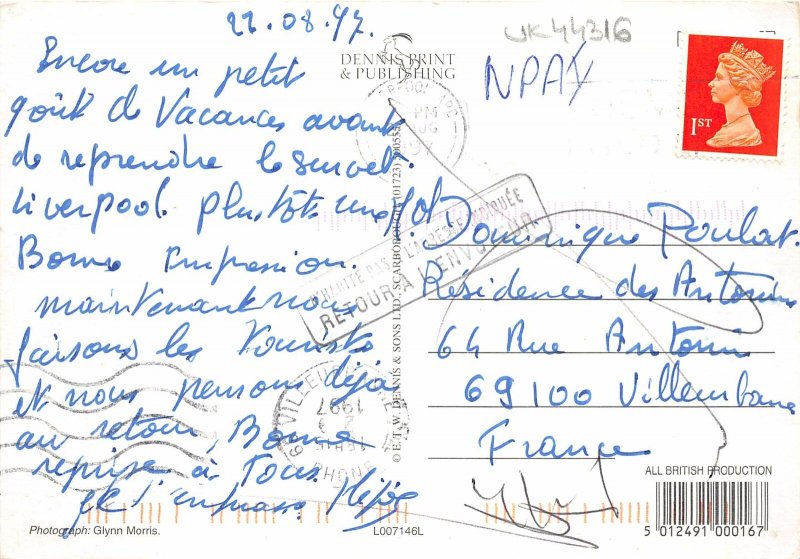 22.08.97.
Encore un petit
goût de Vacances avant
de reprendre le
Liverpool. plutôt une
Bonne Impression.
maintenant nous
faisons les Touristes
et nous pensons déjà
au retour, Bonne
reprise à Tous
Photograph: Glynn Morris.
DENNIS PRINT
& PUBLISHING
© E.T.W. DENNIS & SONS LTD., SCARBOROUGH (01723) 500555
L007146L
UK44316
NPAY
1ST
N'HABITE PAS A L'ADRESSE INDIQUÉE
RETOUR A L'ENVOYEUR
VILLEURBANNE
1997
RHONE
Dominique Poulat.
Résidence des Antonins
64 Rue Antonin
69100 Villeurbanne
France
ALL BRITISH PRODUCTION
5 012491 000167